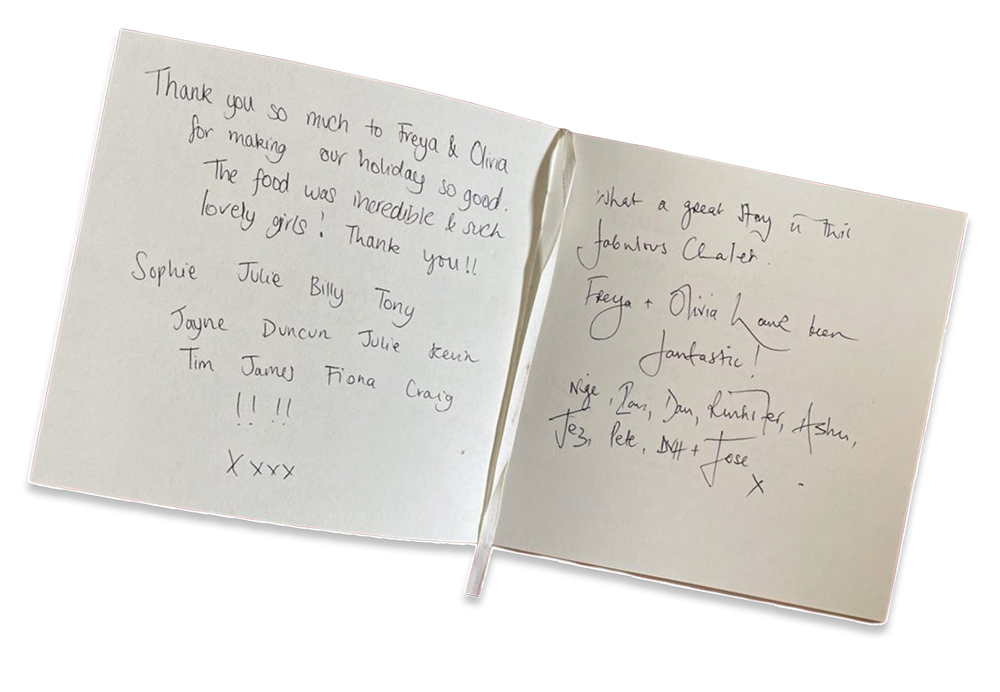 Thank you so much to Freya & Olivia
for making our holiday so good.
The food was incredible & such
lovely girls! Thank you!!
Sophie Julie Billy Tony
Jayne Duncun Julie Kevin
Tim James Fiona Craig
!! !!
X x x x
What a great stay in this
fabulous Chalet.
Freya + Olivia have been
fantastic!
Nige, Dan,
Jez, Pete, + Jose
x